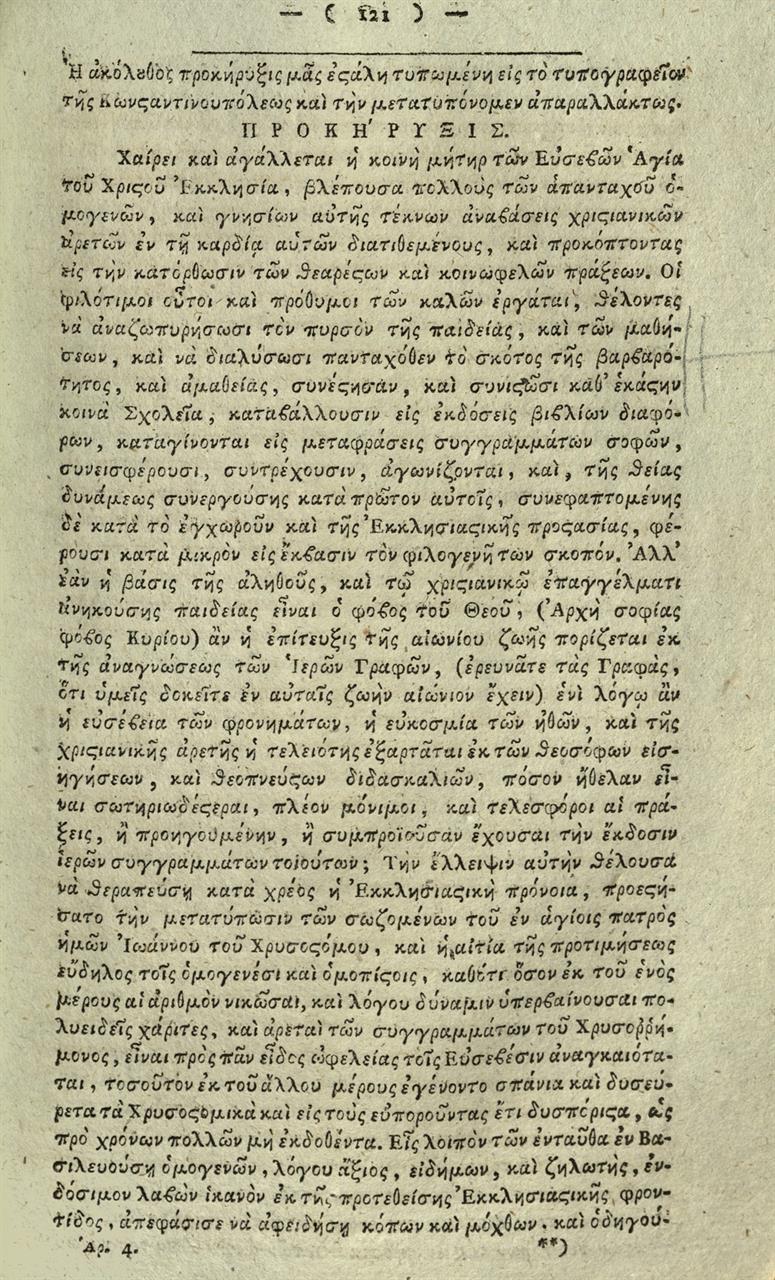 — ( 121 ) —
Ἡ ἀκόλουθος προκήρυξις μᾶς ἐϛάλη τυπωμένη εἰς τὸ τυπογραφεῖον
τῆς Κωνϛαντινουπόλεως καὶ τὴν μετατυπόνομεν ἀπαραλλάκτως.
ΠΡΟΚΗ'ΡΥΞΙΣ.
Χαίρει καὶ ἀγάλλεται ἡ κοινὴ μήτηρ τῶν Εὐσεβῶν Ἁγία
τοῦ Χριϛοῦ Ἐκκλησία, βλέπουσα πολλοὺς τῶν ἁπανταχοῦ ὁ-
μογενῶν, καὶ γνησίων αὐτῆς τέκνων ἀναβάσεις χριϛιανικῶν
ἀρετῶν ἐν τῇ καρδίᾳ αὐτῶν διατιθεμένους, καὶ προκόπτοντας
εἰς τὴν κατόρθωσιν τῶν θεαρέϛων καὶ κοινωφελῶν πράξεων. Οἱ
φιλότιμοι οὗτοι καὶ πρόθυμοι τῶν καλῶν ἐργάται, θέλοντες
νὰ ἀναζωπυρήσωσι τὸν πυρσὸν τῆς παιδείας, καὶ τῶν μαθή-
σεων, καὶ νὰ διαλύσωσι πανταχόθεν τὸ σκότος τῆς βαρβαρό-
τητος, καὶ ἀμαθείας, συνέϛησαν, καὶ συνιϛῶσι καθ' ἑκάϛην
κοινὰ Σχολεῖα, καταβάλλουσιν εἰς ἐκδόσεις βιβλίων διαφό-
ρων, καταγίνονται εἰς μεταφράσεις συγγραμμάτων σοφῶν,
συνεισφέρουσι, συντρέχουσιν, ἀγωνίζονται, καὶ, τῆς θείας
δυνάμεως συνεργούσης κατὰ πρῶτον αὐτοῖς, συνεφαπτομένης
δὲ κατὰ τὸ ἐγχωροῦν καὶ τῆς Ἐκκλησιαϛικῆς προϛασίας, φέ-
ρουσι κατὰ μικρὸν εἰς ἔκβασιν τὸν φιλογενῆ των σκοπόν. Ἀλλ'
ἐὰν ἡ βάσις τῆς ἀληθοῦς, καὶ τῷ χριϛιανικῷ ἐπαγγέλματι
ἀνηκούσης παιδείας εἶναι ὁ φόβος τοῦ Θεοῦ, (Ἀρχὴ σοφίας
φόβος Κυρίου) ἂν ἡ ἐπίτευξις τῆς αἰωνίου ζωῆς πορίζεται ἐκ
τῆς ἀναγνώσεως τῶν Ἱερῶν Γραφῶν, (ἐρευνᾶτε τὰς Γραφὰς,
ὅτι ὑμεῖς δοκεῖτε ἐν αὐταῖς ζωὴν αἰώνιον ἔχειν) ἑνὶ λόγῳ ἂν
ἡ εὐσέβεια τῶν φρονημάτων, ἡ εὐκοσμία τῶν ἠθῶν, καὶ τῆς
χριϛιανικῆς ἀρετῆς ἡ τελειότης ἐξαρτᾶται ἐκ τῶν θεοσόφων εἰσ-
ηγήσεων, καὶ θεοπνεύϛων διδασκαλιῶν, πόσον ἤθελαν εἶ-
ναι σωτηριωδέϛεραι, πλέον μόνιμοι, καὶ τελεσφόροι αἱ πρά-
ξεις, ἢ προηγουμένην, ἢ συμπροϊοῦσαν ἔχουσαι τὴν ἔκδοσιν
ἱερῶν συγγραμμάτων τοιούτων; Τὴν ἔλλειψιν αὐτὴν θέλουσα
νὰ θεραπεύσῃ κατὰ χρέος ἡ Ἐκκλησιαϛικὴ πρόνοια, προεϛή-
σατο τὴν μετατύπωσιν τῶν σωζομένων τοῦ ἐν ἁγίοις πατρὸς
ἡμῶν Ἰωάννου τοῦ Χρυσοϛόμου, καὶ ἡ αἰτία τῆς προτιμήσεως
εὔδηλος τοῖς ὁμογενέσι καὶ ὁμοπίϛοις, καθότι ὅσον ἐκ τοῦ ἑνὸς
μέρους αἱ ἀριθμὸν νικῶσαι, καὶ λόγου δύναμιν ὑπερβαίνουσαι πο-
λυειδεῖς χάριτες, καὶ ἀρεταὶ τῶν συγγραμμάτων τοῦ Χρυσοῤῥή-
μονος, εἶναι πρὸς πᾶν εἶδος ὠφελείας τοῖς Εὐσεβέσιν ἀναγκαιότα-
ται, τοσοῦτον ἐκ τοῦ ἄλλου μέρους ἐγένοντο σπάνια καὶ δυσεύ-
ρετα τὰ Χρυσοϛομικὰ καὶ εἰς τοὺς εὐποροῦντας ἔτι δυσπόριϛα, ὡς
πρὸ χρόνων πολλῶν μὴ ἐκδοθέντα. Εἷς λοιπὸν τῶν ἐνταῦθα ἐν Βα-
σιλευούσῃ ὁμογενῶν, λόγου ἄξιος, εἰδήμων, καὶ ζηλωτὴς, ἐν-
δόσιμον λαβὼν ἱκανὸν ἐκ τῆς προτεθείσης Ἐκκλησιαϛικῆς φρον-
τίδος, ἀπεφάσισε νὰ ἀφειδήσῃ κόπων καὶ μόχθων. καὶ ὁδηγού-
Ἀρ. 4. **)